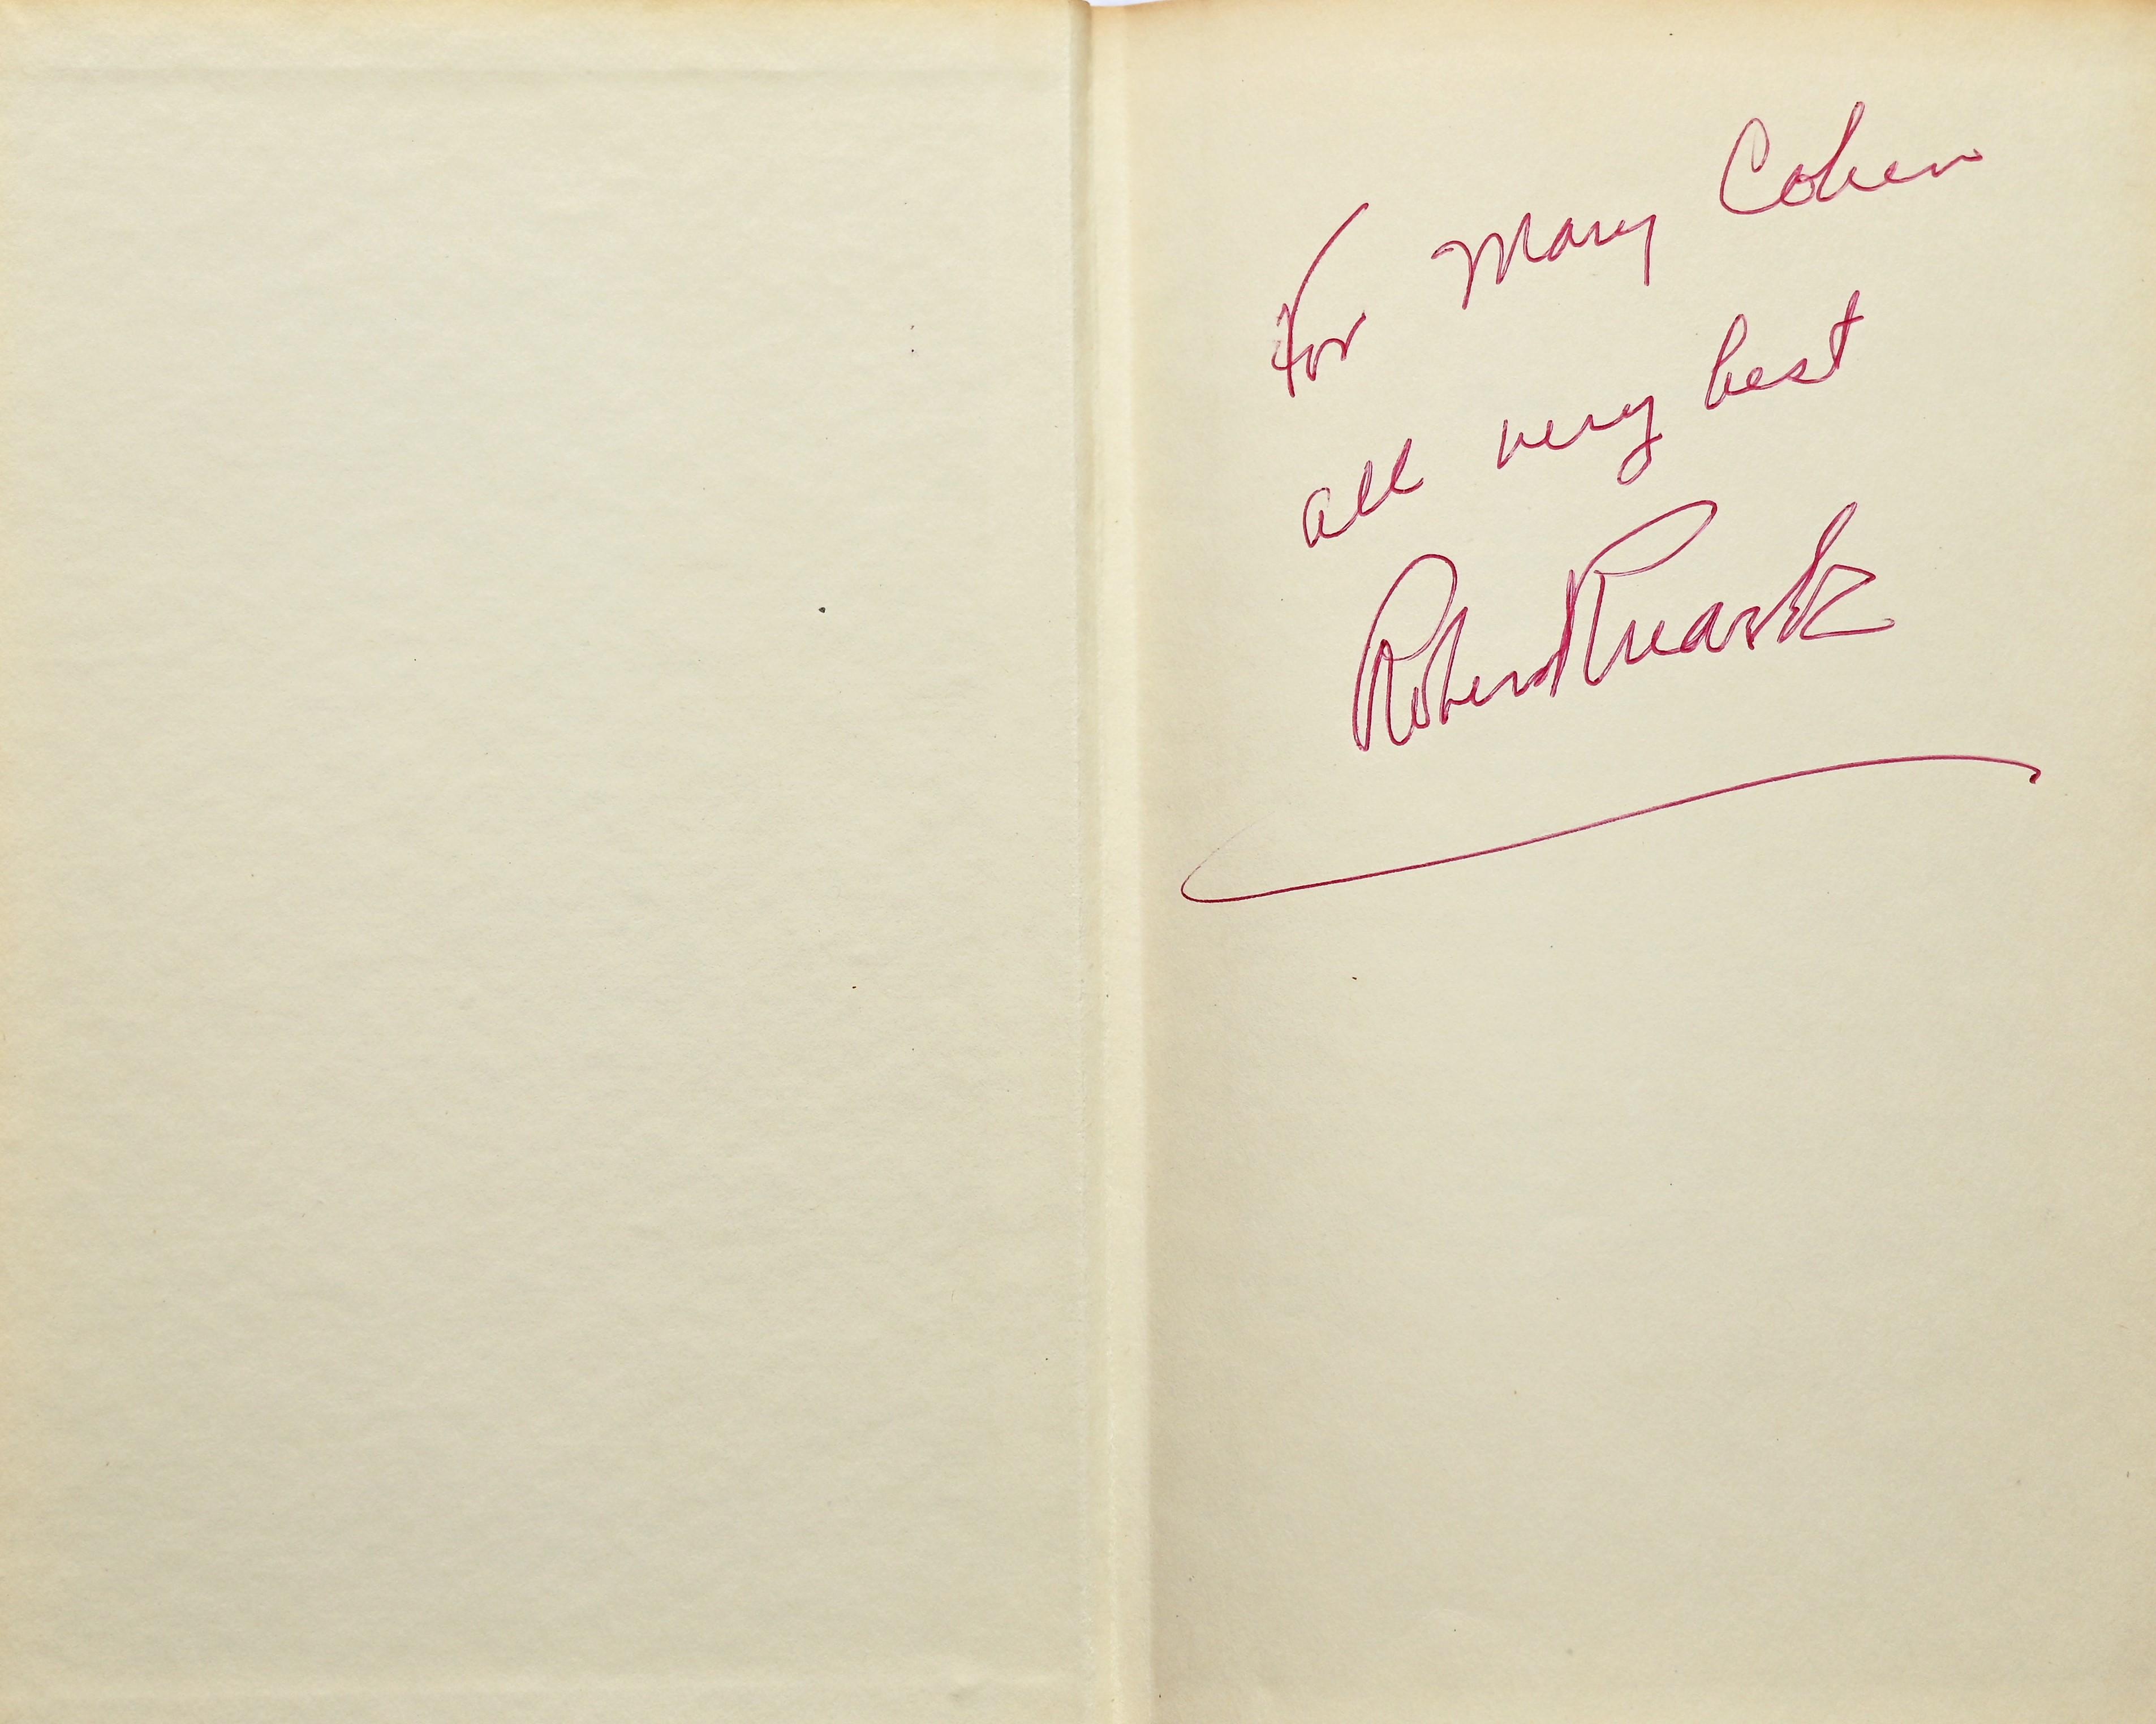 For Mary Cohen
all very best
Robert Ruark